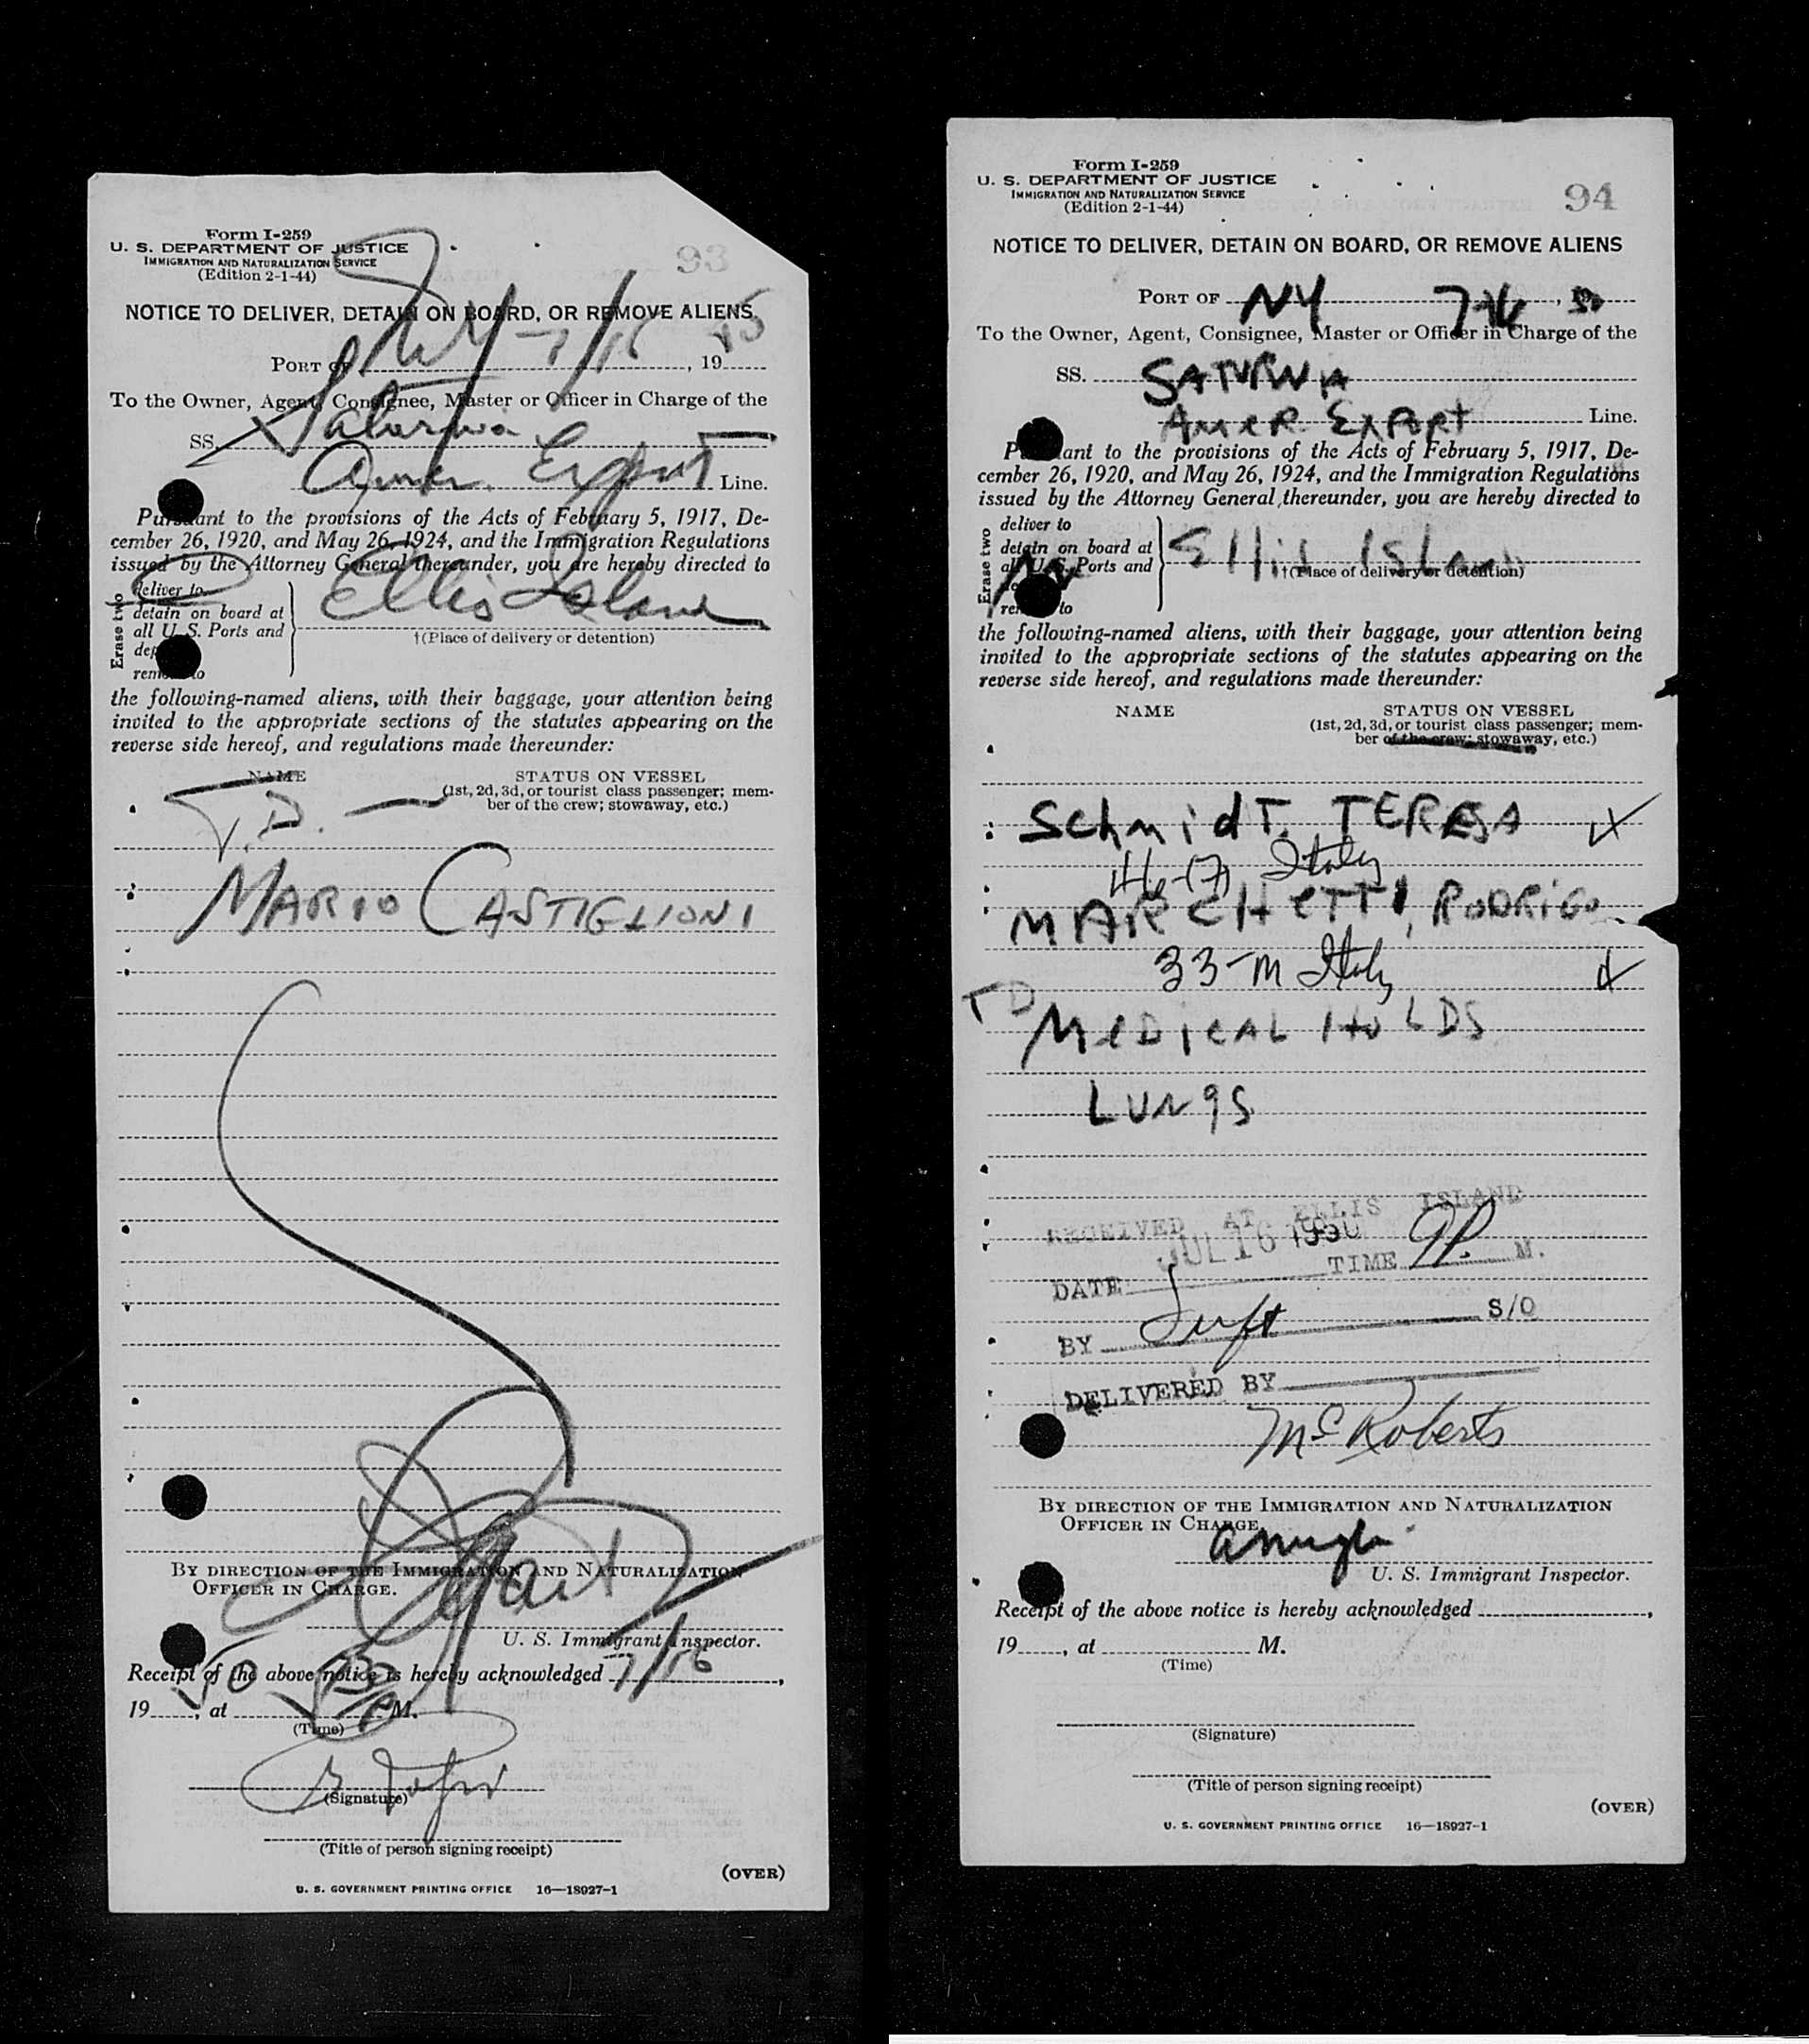 Form I-259
U. S. DEPARTMENT OF JUSTICE
IMMIGRATION AND NATURALIZATION SERVICE
(Edition 2-1-44)
93
NOTICE TO DELIVER, DETAIN ON BOARD, OR REMOVE ALIENS
PORT OF NY 7/16, 1950
To the Owner, Agent, Consignee, Master or Officer in Charge of the
SS. Saturnia
Amer. Export Line.
Pursuant to the provisions of the Acts of February 5, 1917, De-
cember 26, 1920, and May 26, 1924, and the Immigration Regulations
issued by the Attorney General thereunder, you are hereby directed to
Erase two
deliver to
detain on board at
all U. S. Ports and
dep
remove to
Ellis Island
†(Place of delivery or detention)
the following-named aliens, with their baggage, your attention being
invited to the appropriate sections of the statutes appearing on the
reverse side hereof, and regulations made thereunder:
NAME
STATUS ON VESSEL
(1st, 2d, 3d, or tourist class passenger; mem-
ber of the crew; stowaway, etc.)
T.D. —
MARIO CASTIGLIONI
BY DIRECTION OF THE IMMIGRATION AND NATURALIZATION
OFFICER IN CHARGE.
U. S. Immigrant Inspector.
Receipt of the above notice is hereby acknowledged 7/16,
1950, at P M.
(Time)
(Signature)
(Title of person signing receipt)
(OVER)
U. S. GOVERNMENT PRINTING OFFICE 16—18927-1
Form I-259
U. S. DEPARTMENT OF JUSTICE
IMMIGRATION AND NATURALIZATION SERVICE
(Edition 2-1-44)
94
NOTICE TO DELIVER, DETAIN ON BOARD, OR REMOVE ALIENS
PORT OF NY 7-16, 50
To the Owner, Agent, Consignee, Master or Officer in Charge of the
SS. SATURNIA
Amer. Export Line.
Pursuant to the provisions of the Acts of February 5, 1917, De-
cember 26, 1920, and May 26, 1924, and the Immigration Regulations
issued by the Attorney General thereunder, you are hereby directed to
Erase two
deliver to
detain on board at
all U. S. Ports and
de
remove to
Ellis Island
†(Place of delivery or detention)
the following-named aliens, with their baggage, your attention being
invited to the appropriate sections of the statutes appearing on the
reverse side hereof, and regulations made thereunder:
NAME
STATUS ON VESSEL
(1st, 2d, 3d, or tourist class passenger; mem-
ber of the crew; stowaway, etc.)
Schmidt, TERESA
Italy
MARCHETTI, RODRIGO
33-m Italy
TD
MEDICAL HOLDS
LUNGS
RECEIVED AT ELLIS ISLAND
JUL 16 1950
DATE TIME P. M.
BY S/O
DELIVERED BY
McRoberts
BY DIRECTION OF THE IMMIGRATION AND NATURALIZATION
OFFICER IN CHARGE.
U. S. Immigrant Inspector.
Receipt of the above notice is hereby acknowledged ,
19 , at M.
(Time)
(Signature)
(Title of person signing receipt)
(OVER)
U. S. GOVERNMENT PRINTING OFFICE 16—18927-1